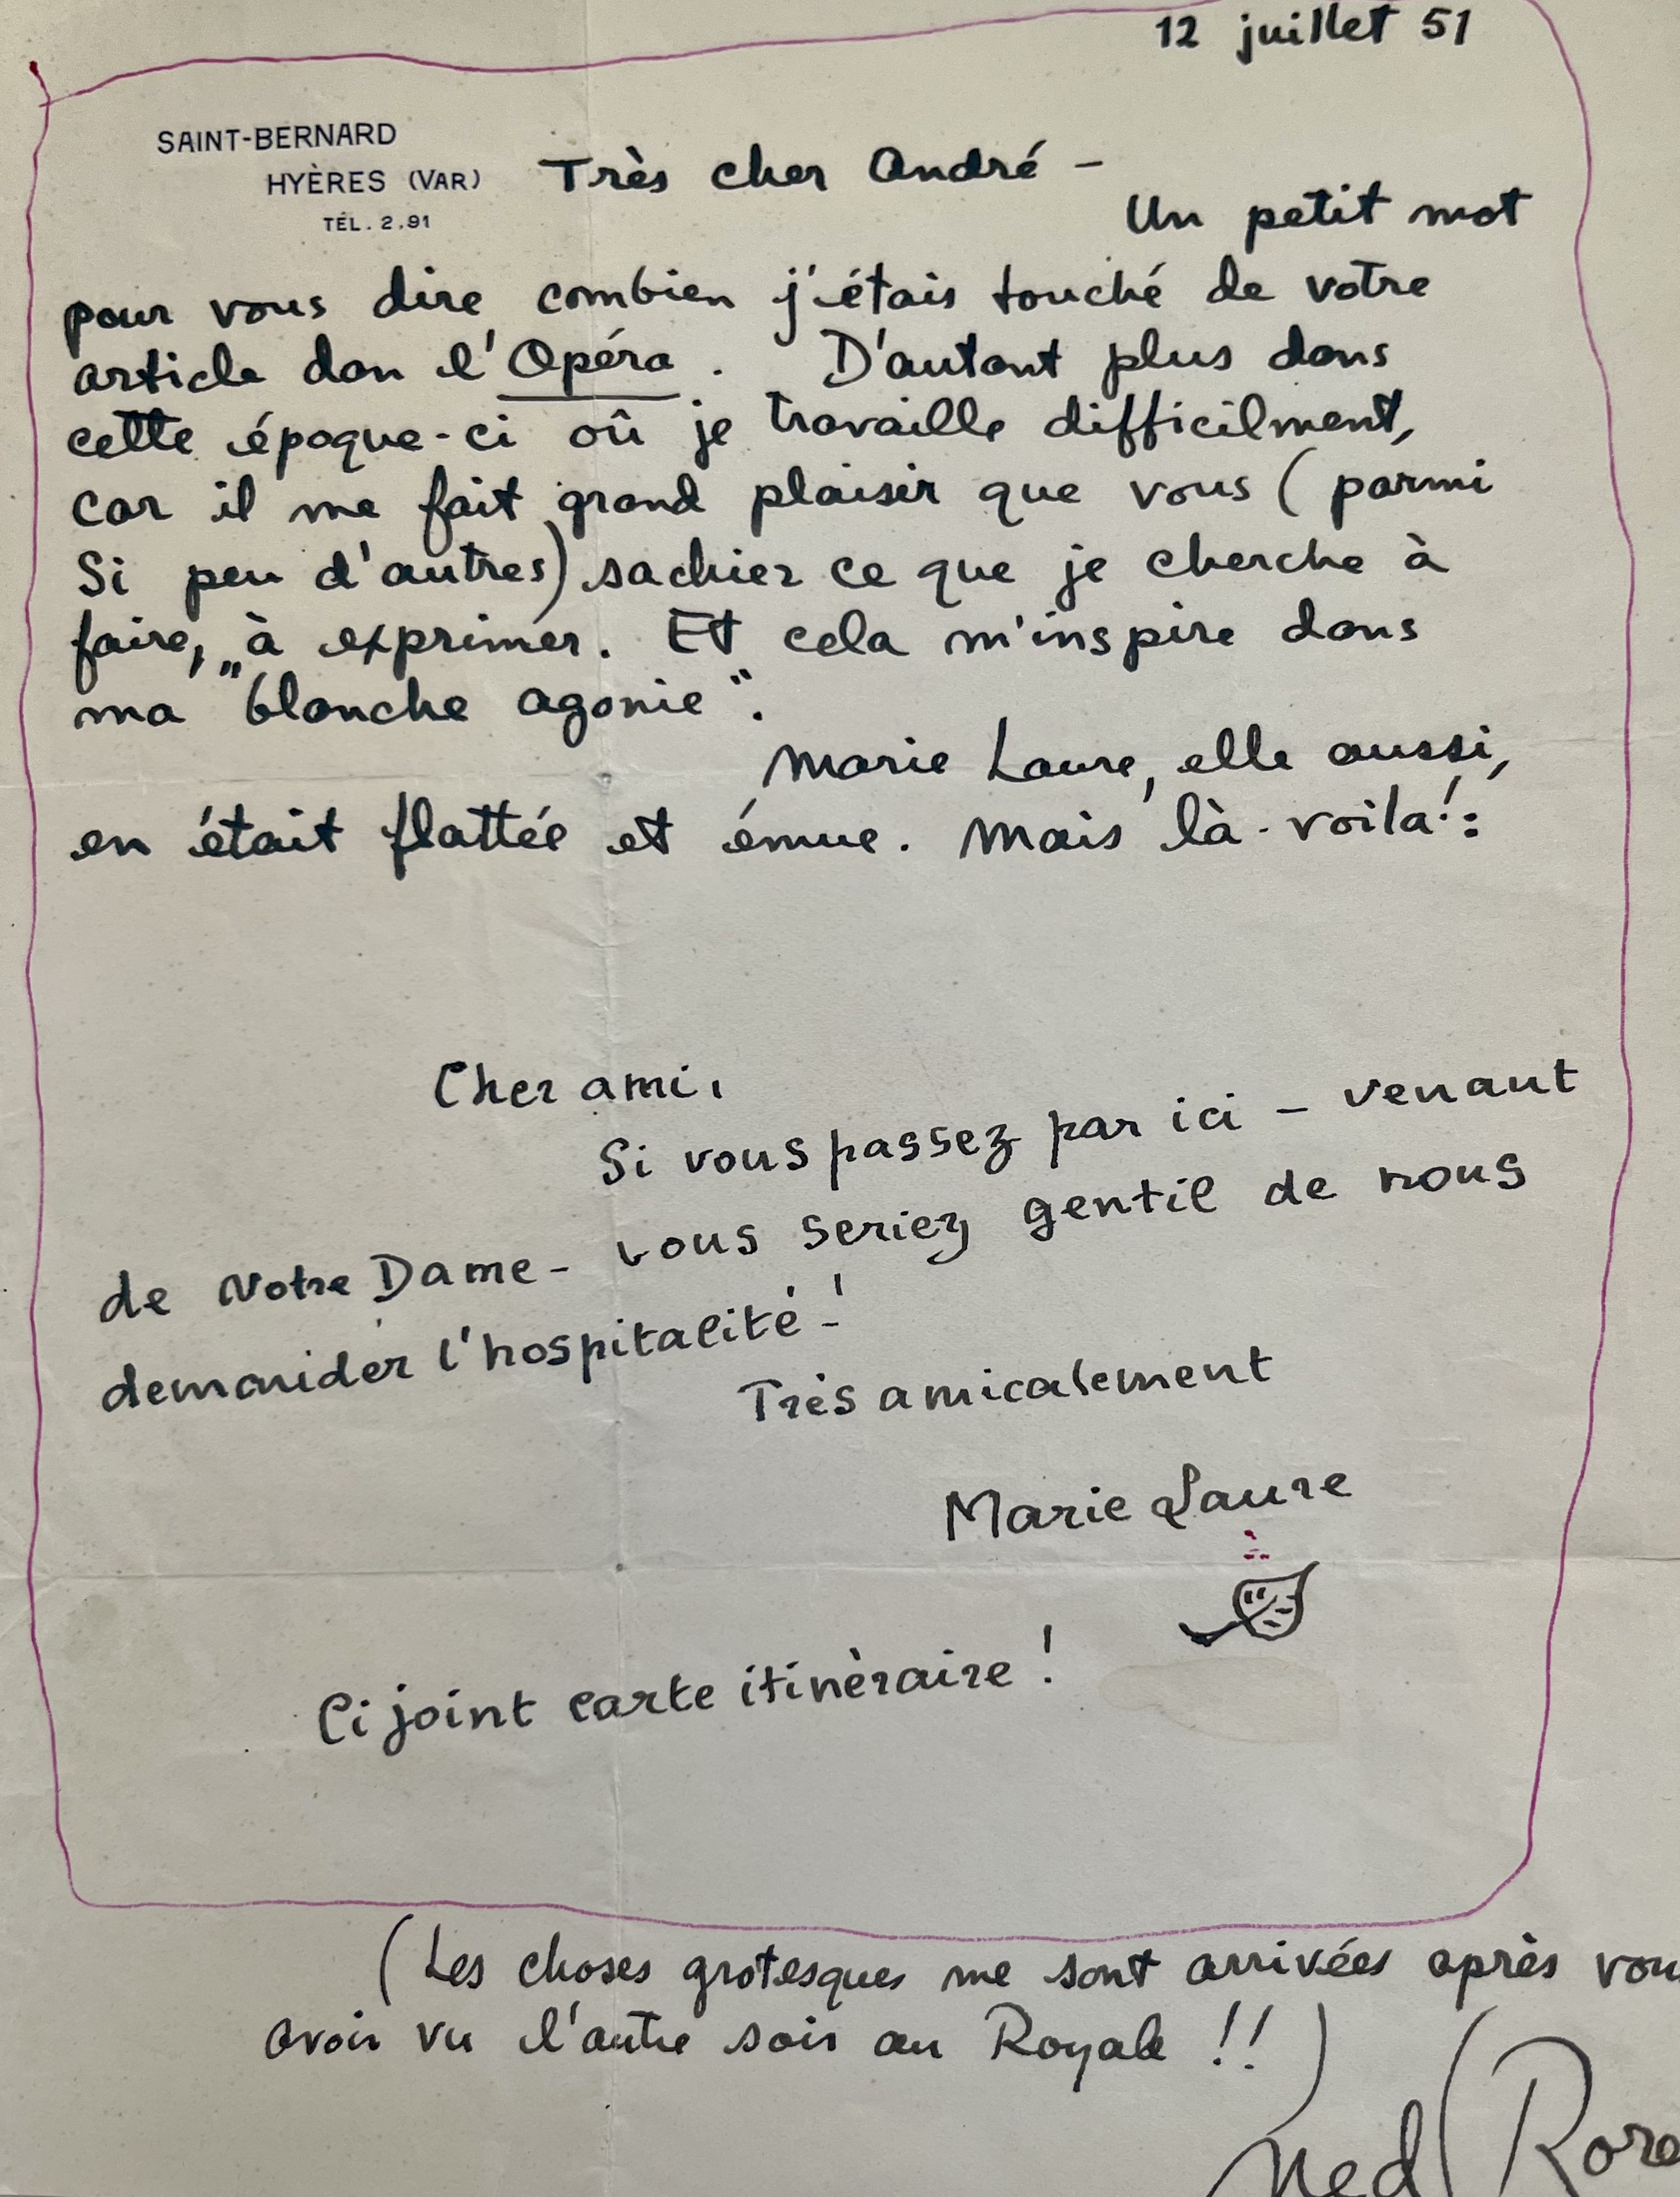 12 juillet 51
SAINT-BERNARD
HYÈRES (VAR)
TÉL. 2.91
Très cher André –
Un petit mot
pour vous dire combien j'étais touché de votre
article dan l'Opéra. D'autant plus dans
cette époque-ci où je travaille difficilment,
car il me fait grand plaisir que vous (parmi
si peu d'autres) sachiez ce que je cherche à
faire, à exprimer. Et cela m'inspire dans
ma „blanche agonie“.
Marie Laure, elle aussi,
en était flattée et émue. Mais là-voila!:
Cher ami,
Si vous passez par ici – venant
de Notre Dame – vous seriez gentil de nous
demander l'hospitalité –!
Très amicalement
Marie Laure
Ci joint carte itinèraire !
(Les choses grotesques me sont arrivées après vou
avoir vu l'autre soir au Royale !!)
Ned (Rore